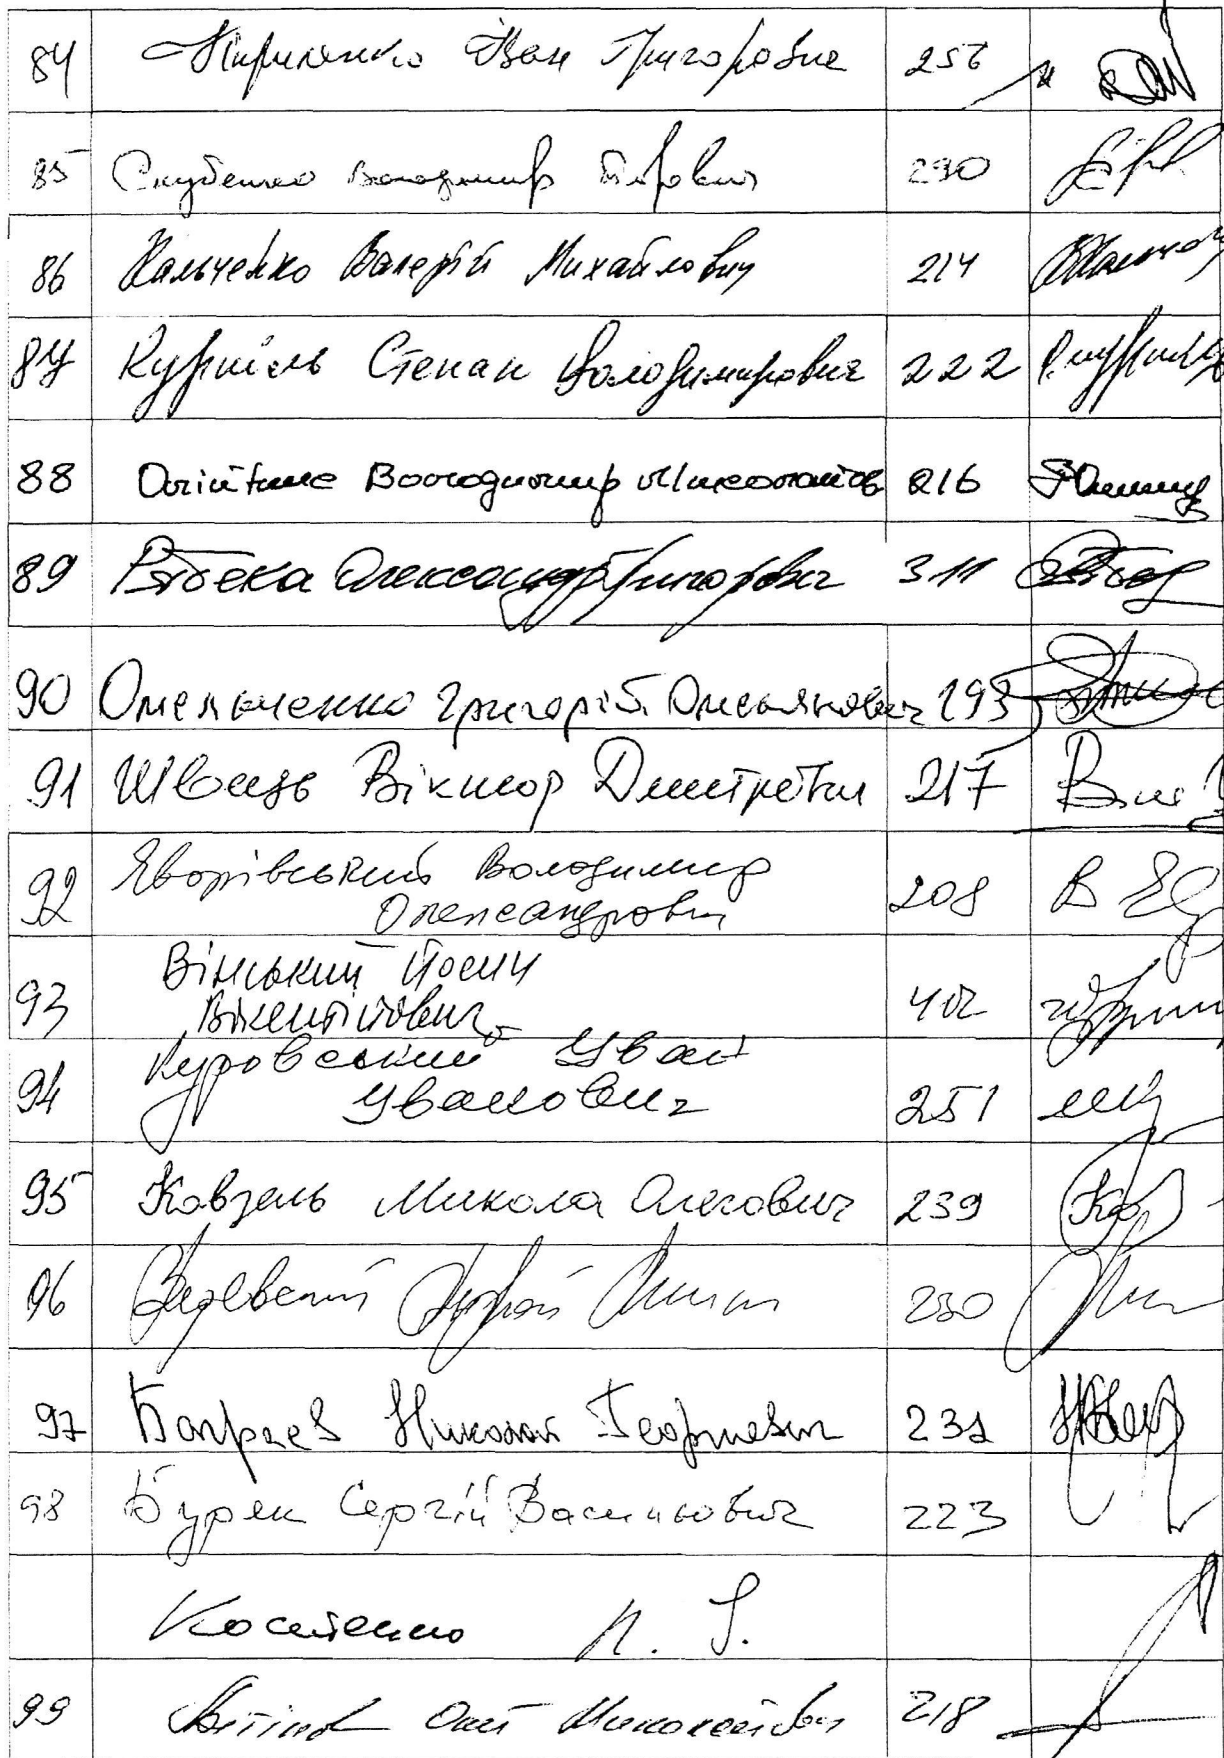 84 Кириленко Іван Григорович 256
85 Скубенко Володимир Петрович 290
86 Кальченко Валерій Михайлович 214
87 Курпіль Степан Володимирович 222
88 Олійник Володимир Миколайов 216
89 Рябека Олександр Григорович 311
90 Омельченко Григорій Омелянович 193
91 Швець Віктор Дмитрович 217
92 Яворівський Володимир
Олександрович 208
93 Вінський Йосип
Вікентійович 402
94 Куровський Іван
Іванович 251
95 Ковзель Микола Олегович 239
96 230
97 Баграєв Николай Георгиевич 231
98 Бурек Сергій Васильович 223
Костенко
99 Миколайович 218